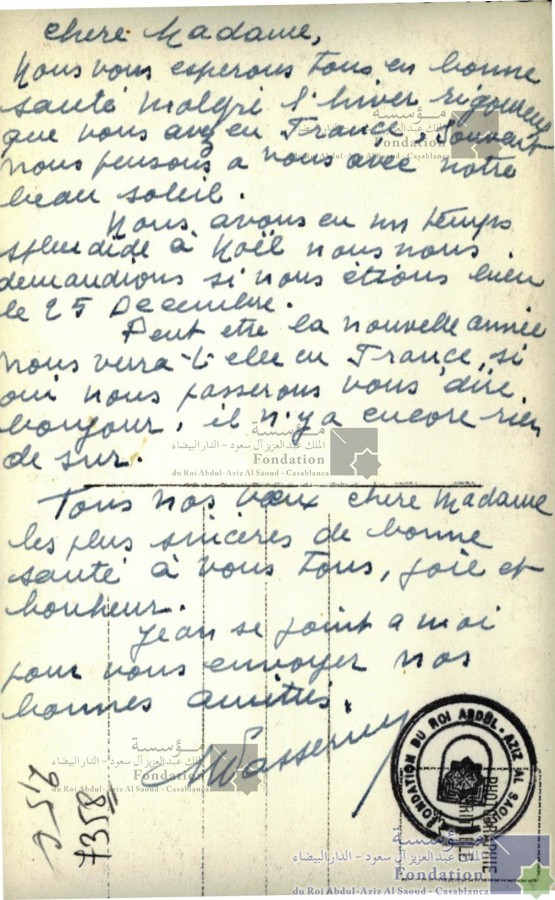 chere Madame,
Nous vous esperons tous en bonne
santé malgré l'hiver rigoureux
que vous avez en France, souvent
nous pensons a vous avec notre
beau soleil.
Nous avons eu un temps
splendide à Noël nous nous
demandions si nous étions bien
le 25 Decembre.
Peut etre la nouvelle année
nous verra-t-elle en France, si
oui nous passerons vous dire
bonjour, il n'y a encore rien
de sur.
Tous nos vœux chere Madame
les plus sinceres de bonne
santé à vous tous, joie et
bonheur.
Jean se joint a moi
pour vous envoyer nos
bonnes amitiés.
7358
FONDATION DU ROI ABDUL-AZIZ AL SAOUD
مؤسسة
الملك عبدالعزيز آل سعود - الدار البيضاء
Fondation
du Roi Abdul-Aziz Al Saoud - Casablanca
الملك عبدالعزيز آل سعود - الدار البيضاء
Fondation
du Roi Abdul-Aziz Al Saoud - Casablanca
مؤسسة
الملك عبدالعزيز آل سعود - الدار البيضاء
Fondation
du Roi Abdul-Aziz Al Saoud - Casablanca
مؤسسة
الملك عبدالعزيز آل سعود - الدار البيضاء
Fondation
du Roi Abdul-Aziz Al Saoud - Casablanca